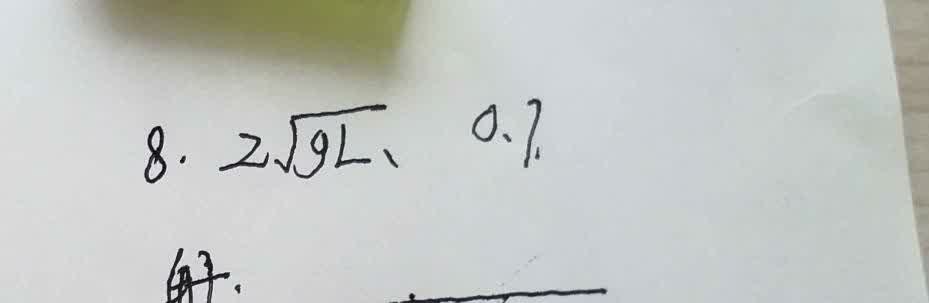 8. 2√gL、 0.1.
解.